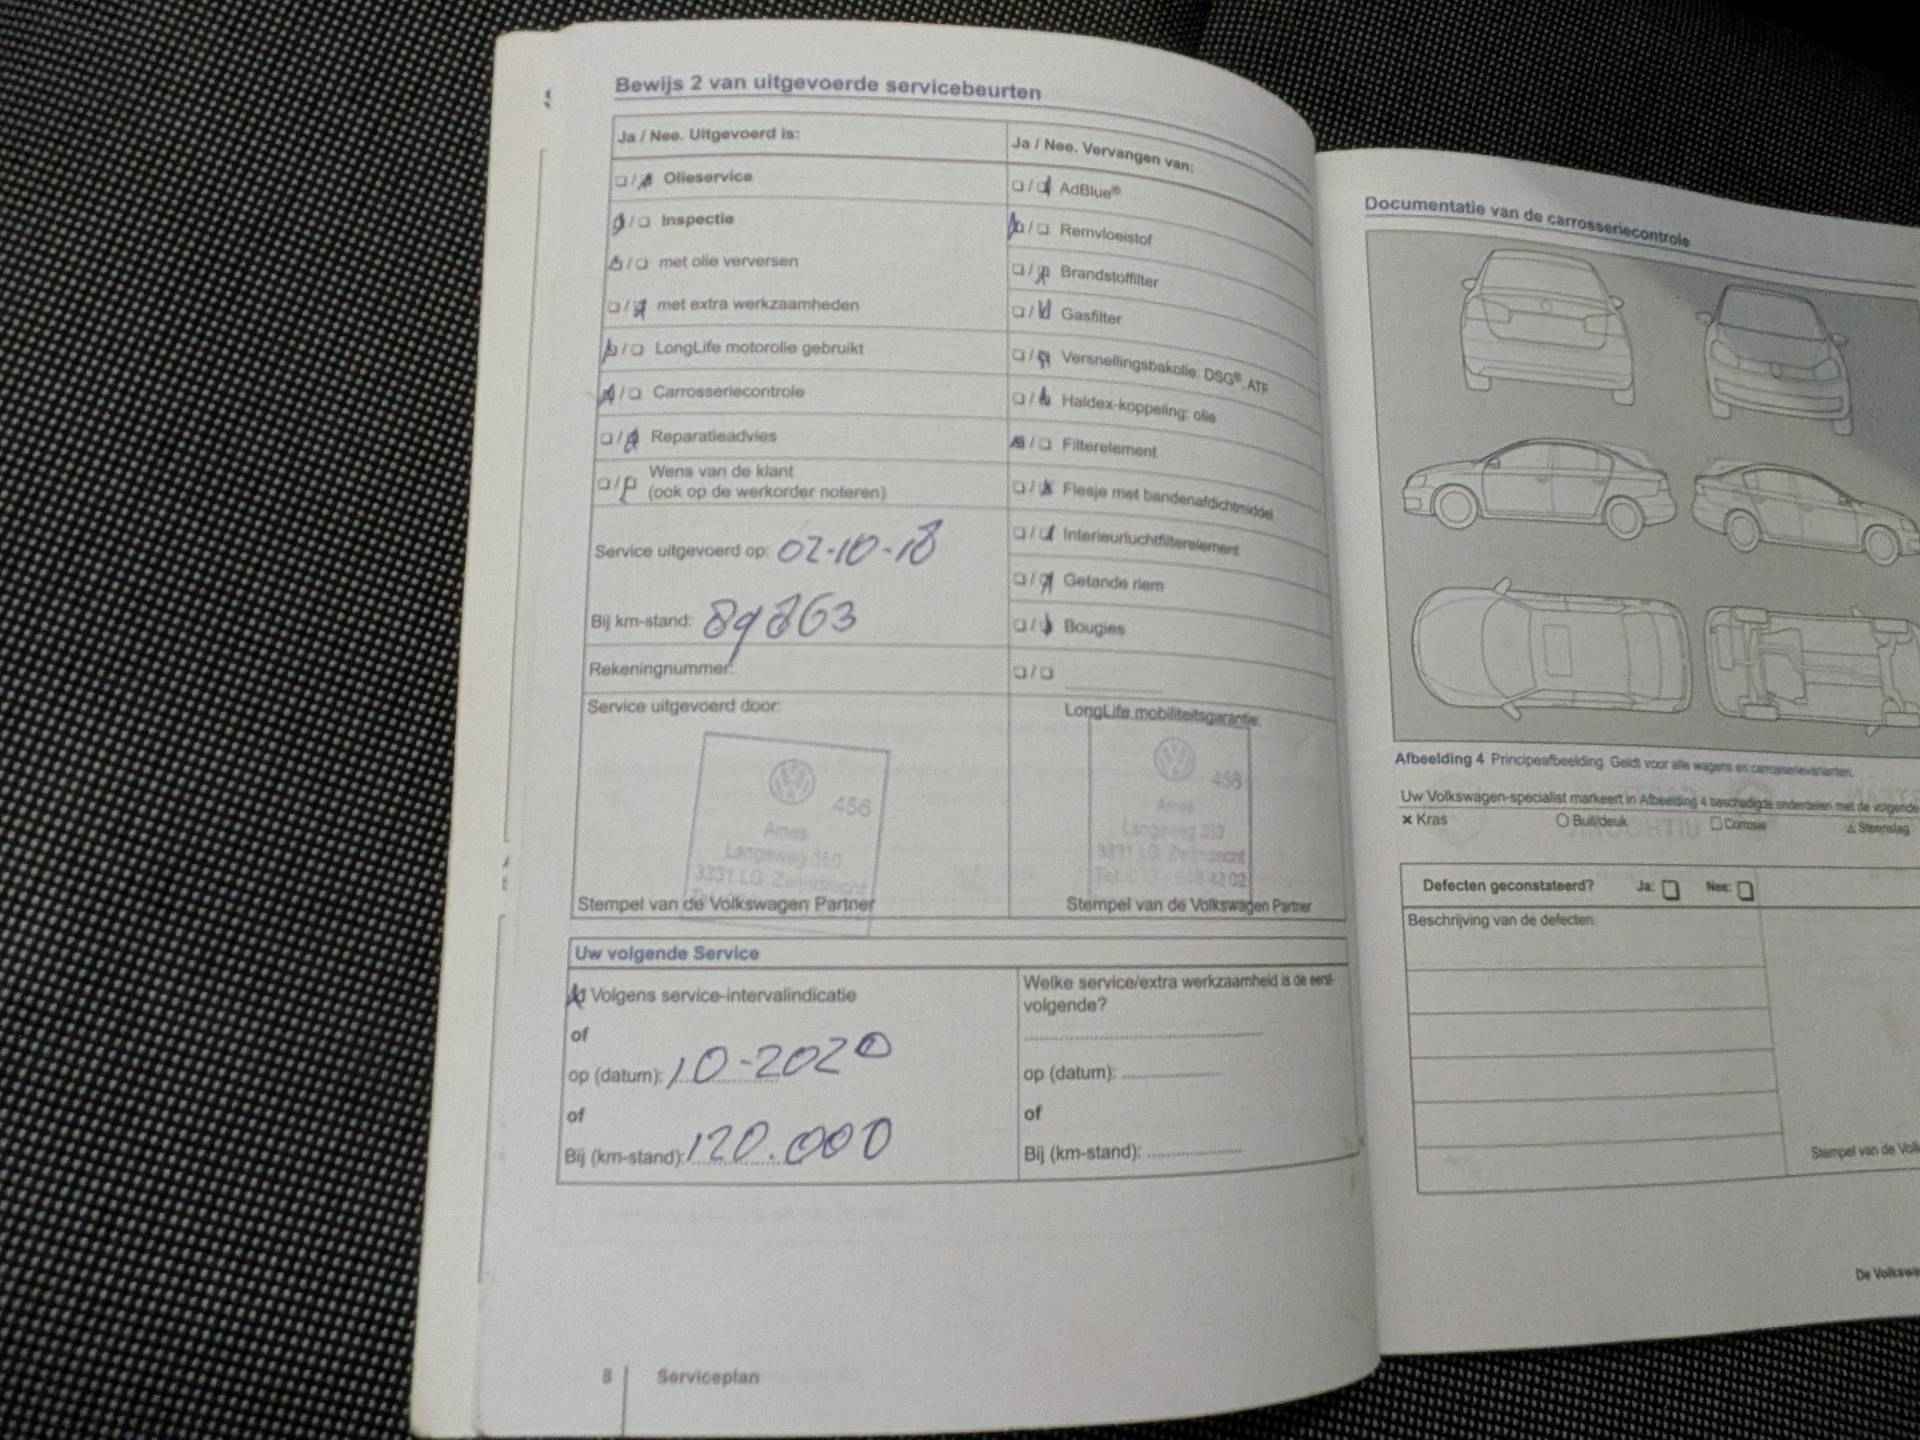 Bewijs 2 van uitgevoerde servicebeurten
Ja / Nee. Uitgevoerd is:
❏ / ❏ Olieservice
❏ / ❏ Inspectie
❏ / ❏ met olie verversen
❏ / ❏ met extra werkzaamheden
❏ / ❏ LongLife motorolie gebruikt
❏ / ❏ Carrosseriecontrole
❏ / ❏ Reparatieadvies
❏ / ❏ Wens van de klant
(ook op de werkorder noteren)
Service uitgevoerd op: 02-10-18
Bij km-stand: 89863
Rekeningnummer:
Service uitgevoerd door:
456
Ames
Langeweg
3331 LG
Stempel van de Volkswagen Partner
Ja / Nee. Vervangen van:
❏ / ❏ AdBlue®
❏ / ❏ Remvloeistof
❏ / ❏ Brandstoffilter
❏ / ❏ Gasfilter
❏ / ❏ Versnellingsbakolie: DSG®, ATF
❏ / ❏ Haldex-koppeling: olie
❏ / ❏ Filterelement
❏ / ❏ Flesje met bandenafdichtmiddel
❏ / ❏ Interieurluchtfilterelement
❏ / ❏ Getande riem
❏ / ❏ Bougies
❏ / ❏
LongLife mobiliteitsgarantie:
456
Ames
Langeweg
3331 LG
Stempel van de Volkswagen Partner
Uw volgende Service
❏ Volgens service-intervalindicatie
of
op (datum): 10-2020
of
Bij (km-stand): 120.000
Welke service/extra werkzaamheid is de eerst-
volgende?
op (datum):
of
Bij (km-stand):
8 Serviceplan
Documentatie van de carrosseriecontrole
Afbeelding 4 Principeafbeelding. Geldt voor alle wagens en carrosserievarianten.
Uw Volkswagen-specialist markeert in Afbeelding 4 beschadigde onderdelen met de volgende
× Kras ○ Buil/deuk □ Corrosie △ Steenslag
Defecten geconstateerd? Ja: ❏ Nee: ❏
Beschrijving van de defecten:
Stempel van de
De